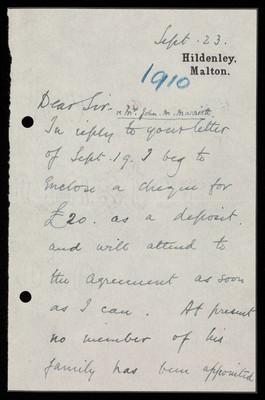 Sept. 23.
Hildenley,
Malton.
1910
Dear Sir.
Mr. John M.
In reply to your letter
of Sept. 19. I beg to
enclose a cheque for
£20. as a deposit.
and will attend to
the agreement as soon
as I can. At present
no member of his
family has been appointed